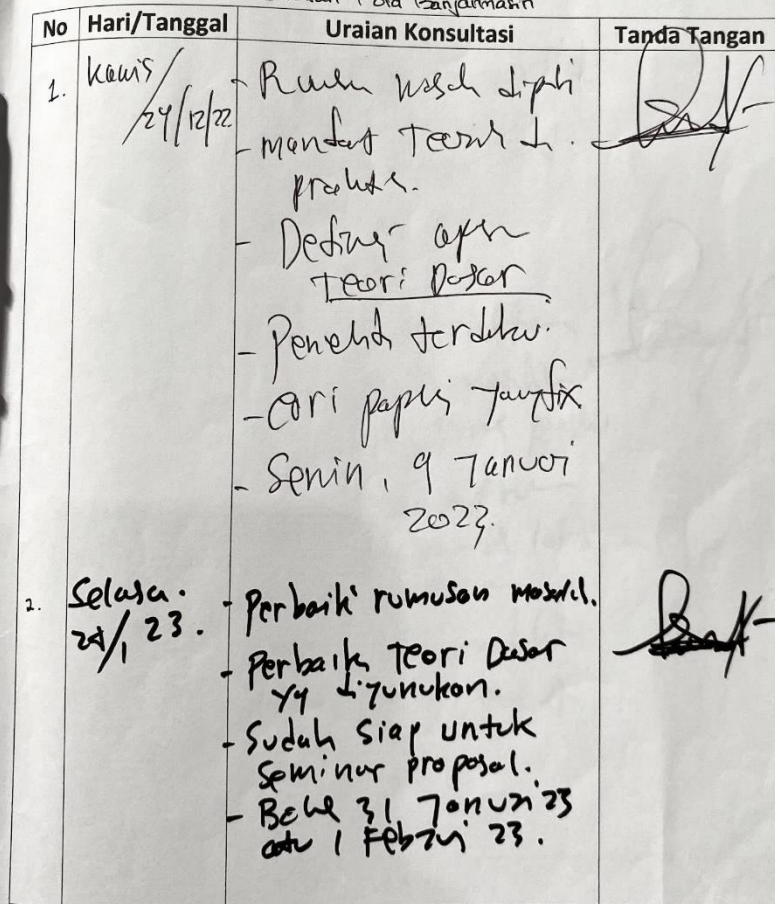 Banjarmasin
No Hari/Tanggal Uraian Konsultasi Tanda Tangan
1. Kamis/
29/12/22
- dipili
- manfaat Teoritis
praktis.
-
Teori Dasar
- Peneliti terdahu.
- Cari yang fix
- Senin, 9 Januari
2023.
2. Selasa.
24/1 23.
- Perbaiki rumusan masalah.
- Perbaiki Teori Dasar
yg digunakan.
- Sudah siap untuk
seminar proposal.
- 31 Januari 23
atau 1 Februari 23.